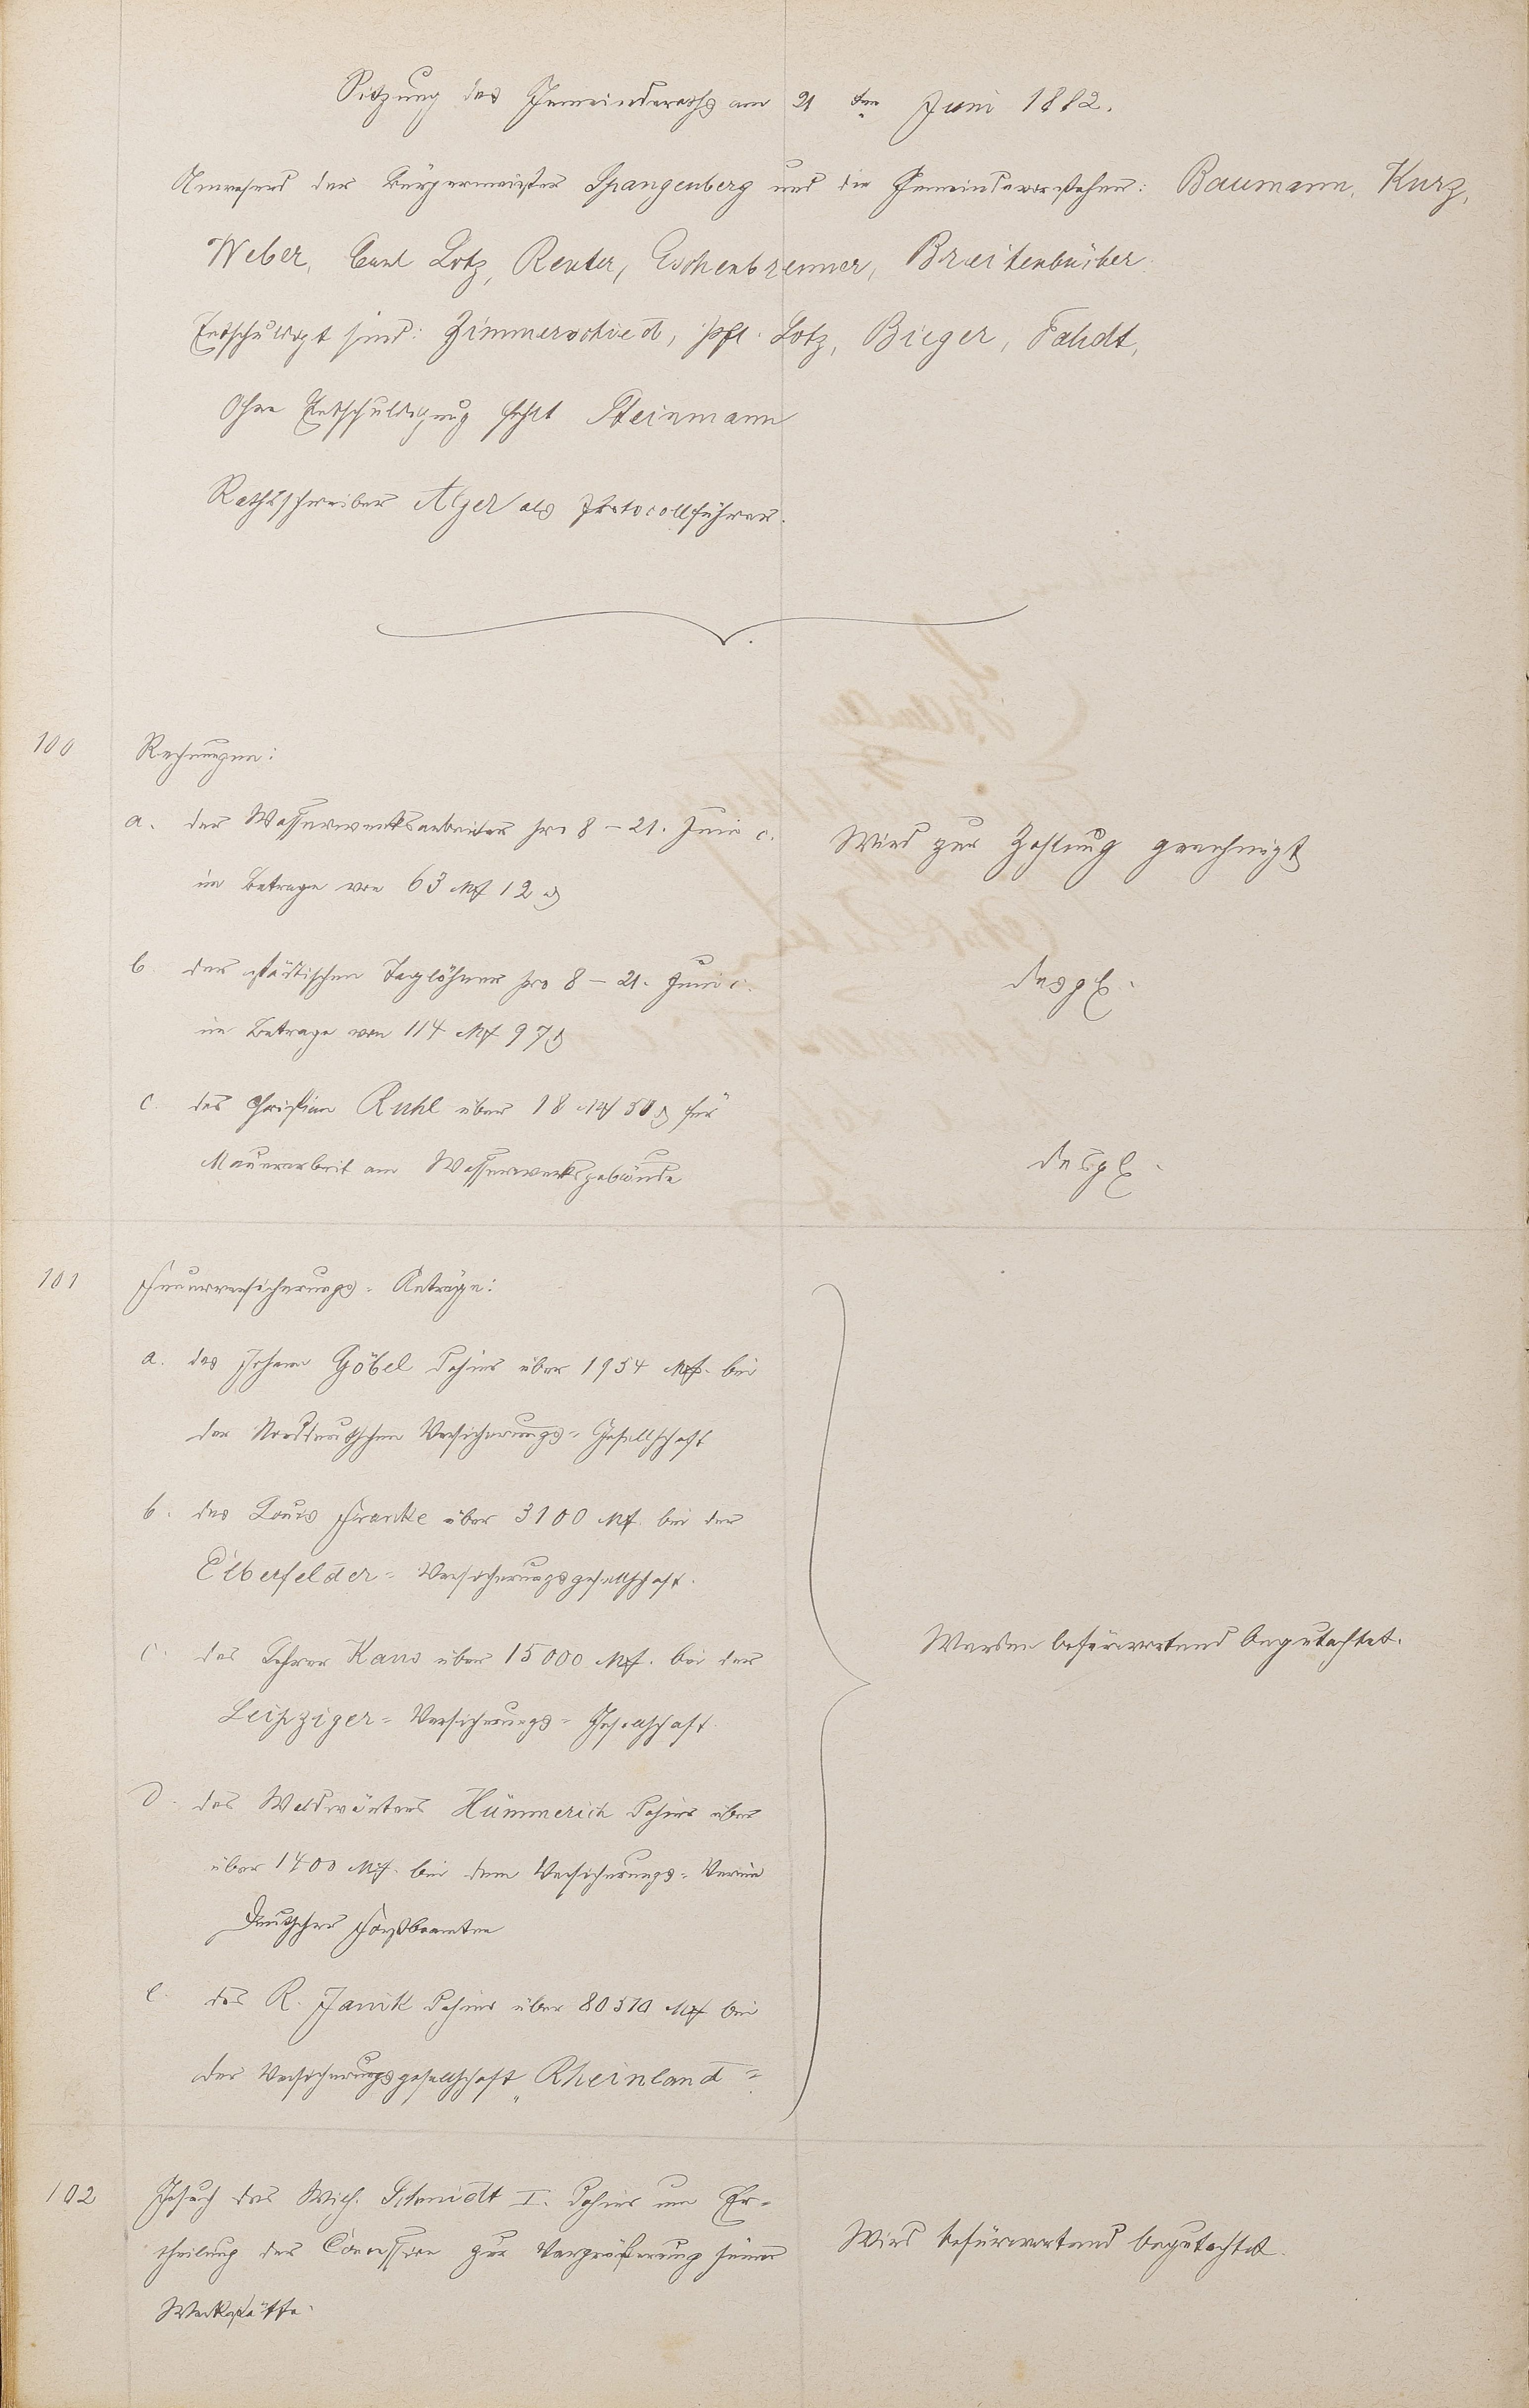 Sitzung des Gemeinderaths am 21 ten Juni 1882.
Anwesend der Bürgermeister Spangenberg und die Gemeindevorsteher: Baumann, Kurz,
Weber, Carl Lotz, Reuter, Eschenbrenner, Breitenbücher
Entschuldigt sind: Zimmerschied, Lotz, Bieger, Fahdt,
Ohne Entschuldigung fehlt Steinmann
Rathsschreiber Alzer als Protocollführer.
100 Rechnungen:
a. der Wasserwerksarbeiter pro 8 – 21. Juni c. Wird zur Zahlung genehmigt
im Betrage von 63 Mk 12 ₰
b. der städtischen Taglöhner pro 8 – 21. Juni c. desgl.
im Betrage von 114 Mk 97 ₰
c. des Christian Ruhl über 18 Mk 50 ₰ für
Mauerarbeit am Wasserwerksgebäude desgl.
101 Feuerversicherungs-Anträge:
a. des Johann Göbel dahier über 1954 Mk. bei
der Norddeutschen Versicherungs-Gesellschaft
b. des Louis Francke über 3100 Mk. bei der
Elberfelder-Versicherungsgesellschaft.
c. des Lehrer Kaus über 15000 Mk. bei der Werden befürwortend begutachtet.
Leipziger-Versicherungs-Gesellschaft.
d. des Waldwärters Hümmerich dahier über
über 1400 Mk. bei dem Versicherungs-Verein
Deutscher Forstbeamten
e. des R. Janik dahier über 80510 Mk bei
der Versicherungsgesellschaft „Rheinland"
102 Gesuch des Wilh. Schmidt I. dahier um Er-
theilung der Concession zur Vergrößerung seiner Wird befürwortend begutachtet.
Werkstätte.